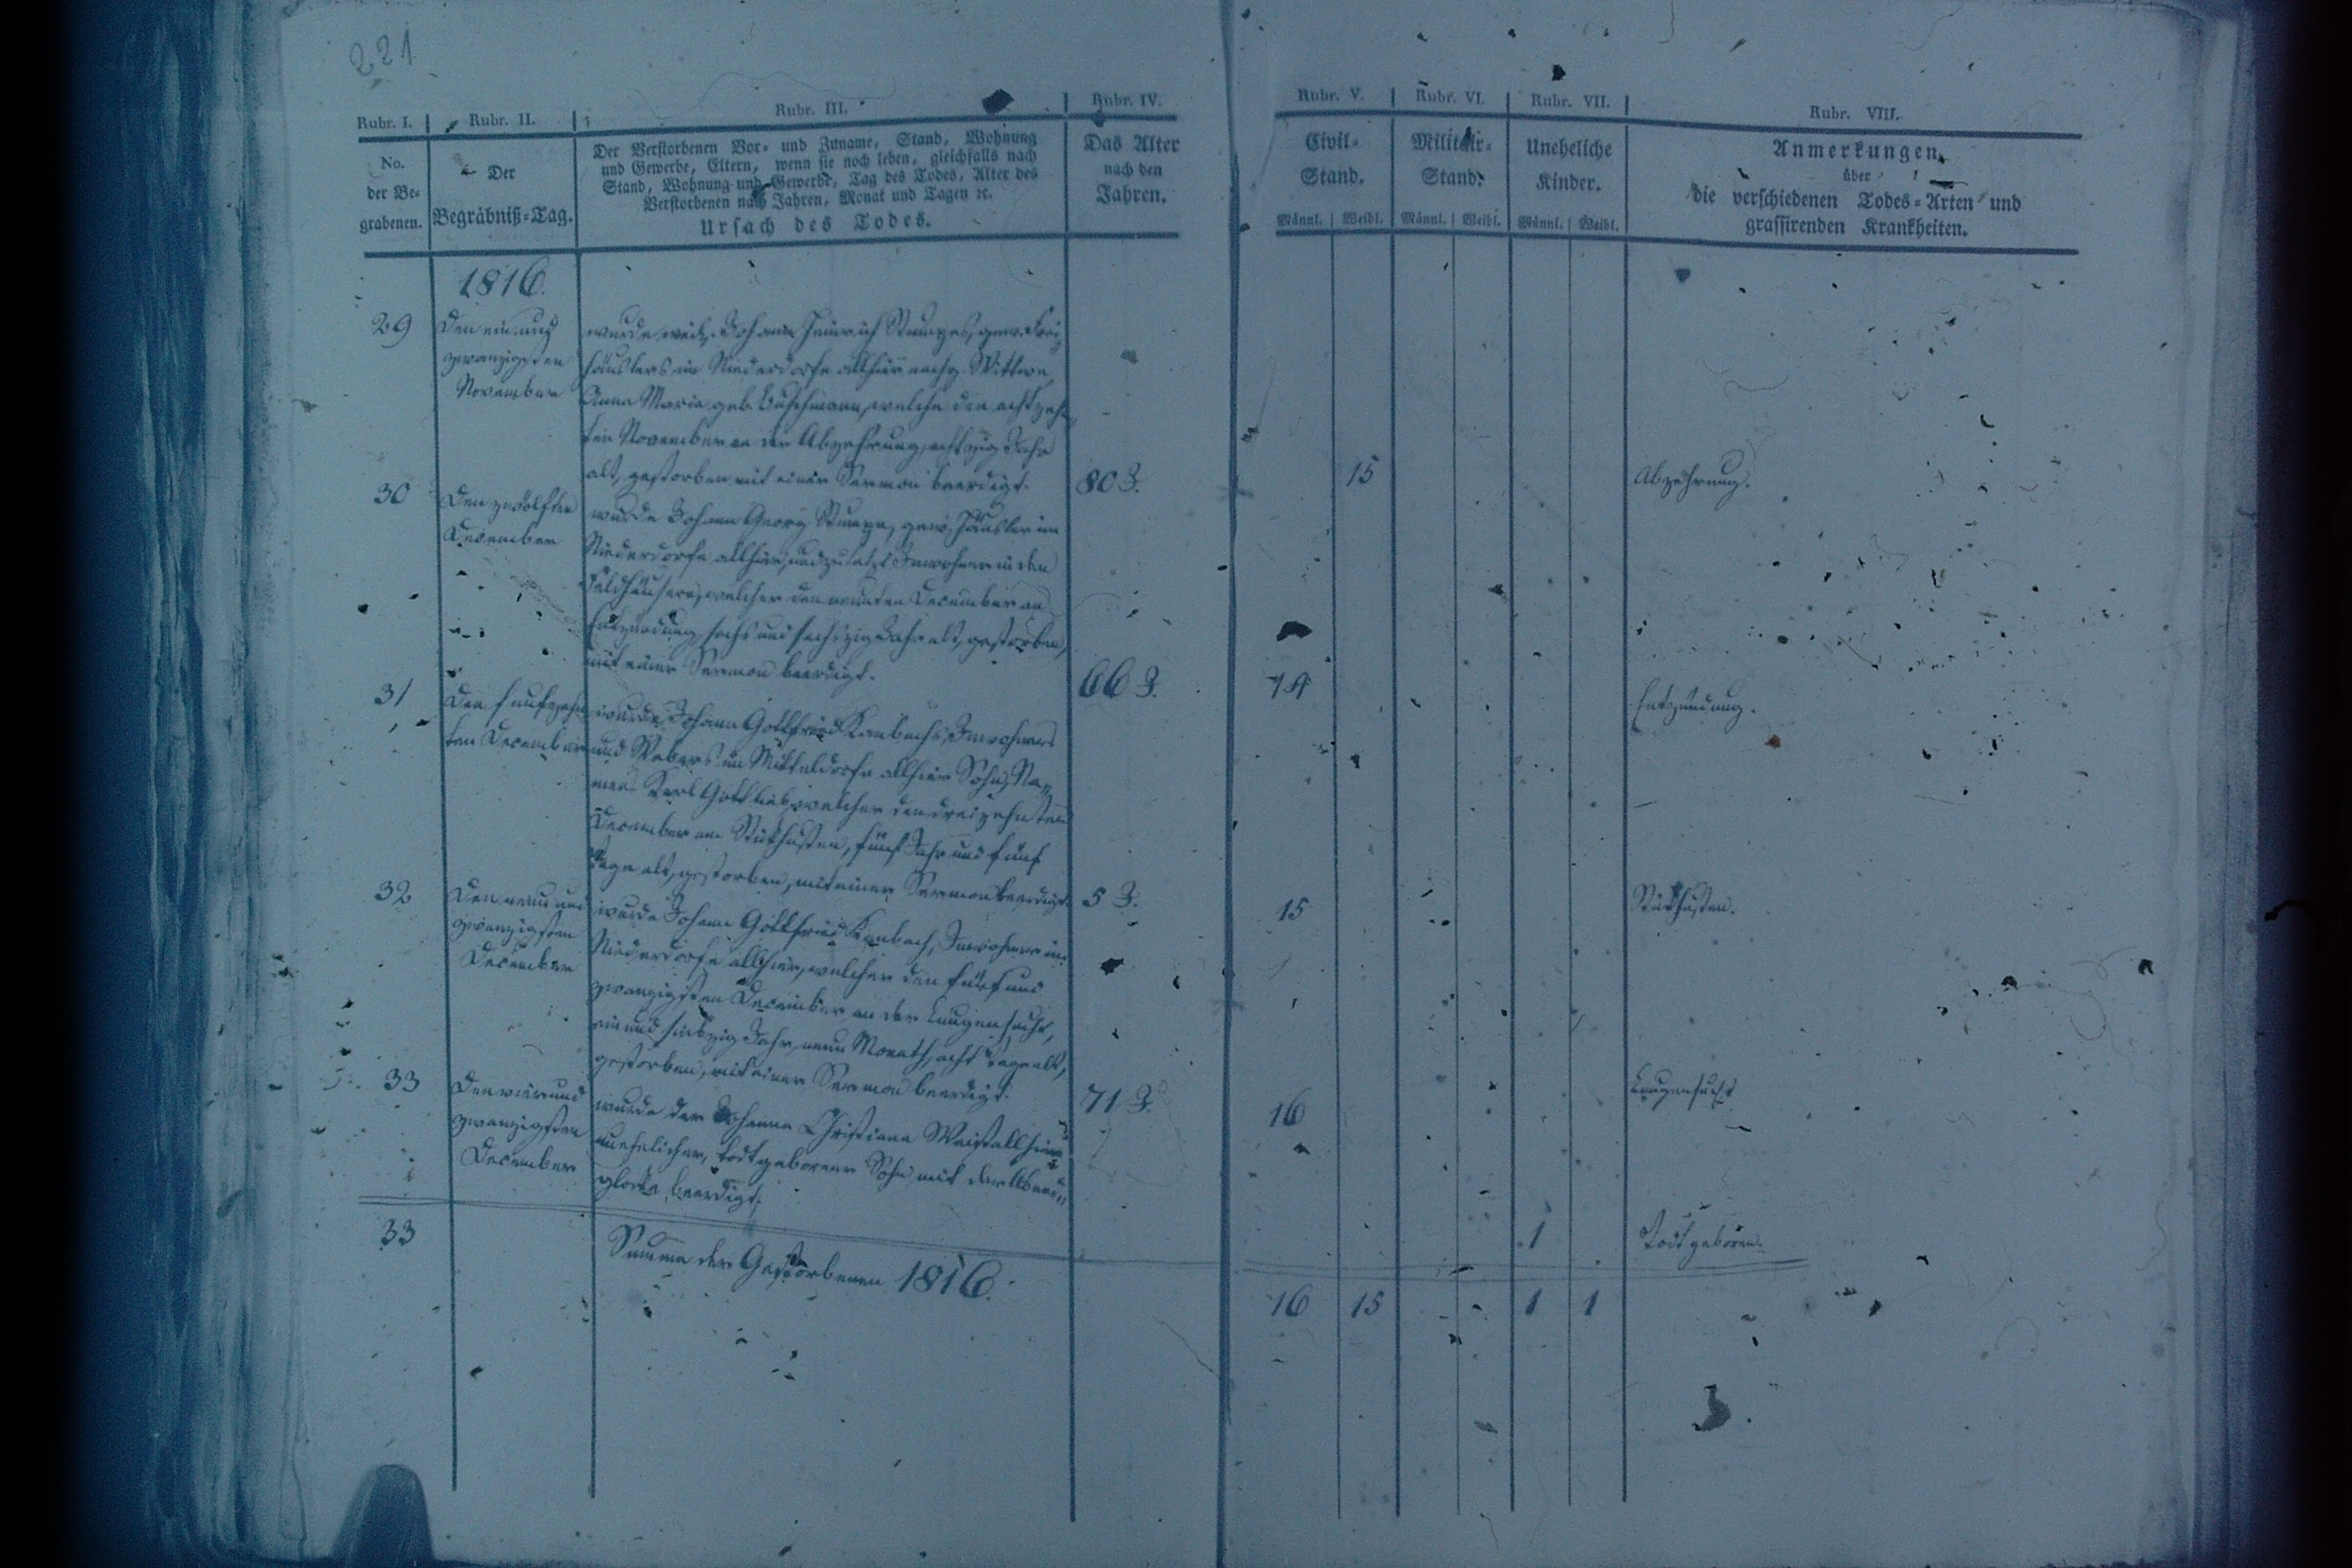 221
Rubr. I. Rubr. II. Rubr. III. Rubr. IV. Rubr. V. Rubr. VI. Rubr. VII. Rubr. VIII.
No.
der Be-
grabenen.
Der
Begräbniß-Tag.
Der Verstorbenen Vor- und Zuname, Stand, Wohnung
und Gewerbe, Eltern, wenn sie noch leben, gleichfalls nach
Stand, Wohnung und Gewerbe, Tag des Todes, Alter des
Verstorbenen nach Jahren, Monat und Tagen ꝛc.
Ursach des Todes.
Das Alter
nach den
Jahren.
Civil-
Stand.
Männl. Weibl.
Militair-
Stand.
Männl. Weibl.
Uneheliche
Kinder.
Männl. Weibl.
Anmerkungen
über
die verschiedenen Todes-Arten und
grassirenden Krankheiten.
1816.
29
Den ein und
zwanzigsten
November
wurde weil. Johann Heinrich Stumpes, gew. Frei-
häuslers im Niederdorfe allhier nachg. Wittwe
Anna Maria geb. Buschmann, welche den achtzehn-
ten November an der Abzehrung, achtzig Jahr
alt, gestorben mit einer Sermon beerdigt.
80 J.
15
Abzehrung.
30
Den zwölften
December
wurde Johann Georg Stumpe, gew. Häusler im
Niederdorfe allhier, und zuletzt Inwohner in den
Feldhäusern, welcher den neunten December an
Entzündung, sechs und sechszig Jahr alt, gestorben,
mit einer Sermon beerdigt.
66 J.
14
Entzündung.
31
Den funfzehn
ten December
wurde Johann Gottfried Kambachs, Inwohners
und Webers im Mitteldorfe allhier Sohn, Na-
mens Karl Gottlieb, welcher den dreizehnten
December am Stickhusten, fünf Jahr und fünf
Tage alt, gestorben, mit einer Sermon beerdigt.
5 J.
15
Stickhusten.
32
Den neun und
zwanzigsten
December
wurde Johann Gottfried Kambach, Inwohner im
Niederdorfe allhier, welcher den fünf und
zwanzigsten December an der Lungensucht,
ein und siebzig Jahr, neun Monath, acht Tage alt,
gestorben, mit einer Sermon beerdigt.
71 J.
16
Lungensucht
33
Den vier und
zwanzigsten
December
wurde der Johanna Christiana allhier
unehelicher, todtgeborner Sohn, mit der
glocke beerdigt.
1
Todtgeboren.
33
Summa der Gestorbenen 1816.
16 15 1 1